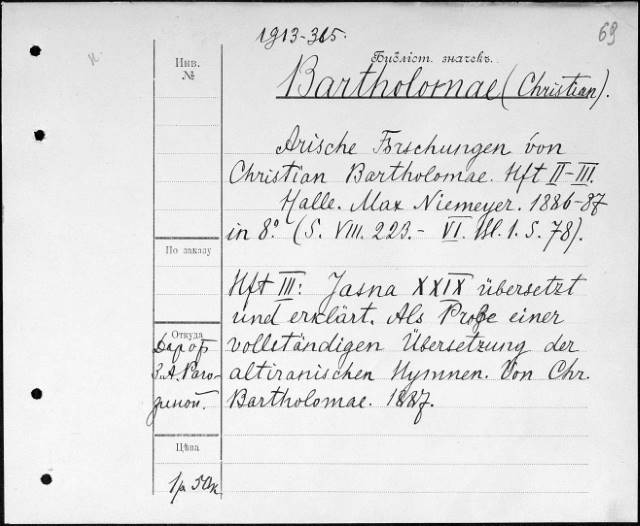 1913-315.
69
Инв.
№
Библіот. значекъ.
Bartholomae (Christian).
Arische Forschungen von
Christian Bartholomae. Hft II-III.
Halle. Max Niemeyer. 1886-87
in 8º. (S. VIII. 223. - VI. Bl. 1. S. 78).
По заказу
Hft III: Jasna XXIX übersetzt
und erklärt. Als Probe einer
vollständigen Übersetzung der
altiranischen Hymnen. Von Chr.
Bartholomae. 1887.
Откуда
Даръ от
З.А. Раго-
зиной.
Цѣна
1р 50к